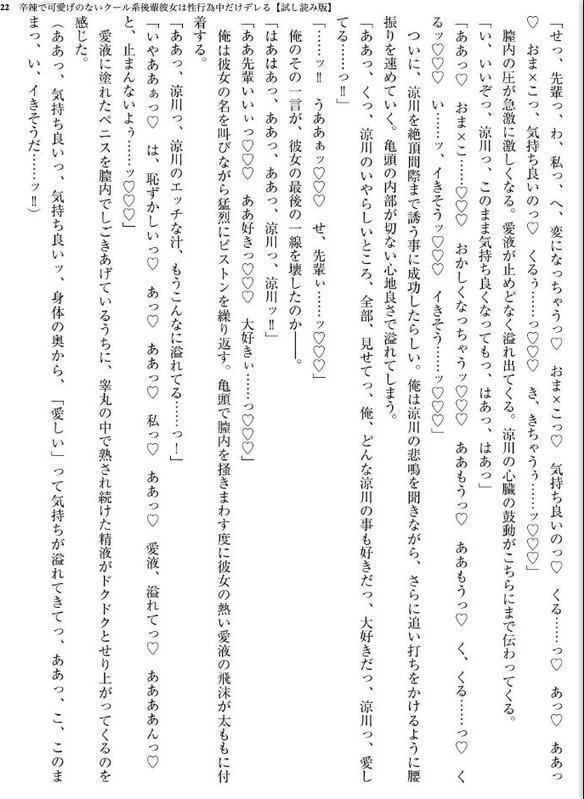 22　辛辣で可愛げのないクール系後輩彼女は性行為中だけデレる【試し読み版】
「せっ、先輩っ、わ、私っ、へ、変になっちゃうっ♡　おま×こっ♡　気持ち良いのっ♡　くる……っ♡　あっ♡　ああっ
♡　おま×こっ、気持ち良いのっ♡　くるぅ……っ♡♡　き、きちゃうぅ……ッ♡♡♡」
　膣内の圧が急激に激しくなる。愛液が止めどなく溢れ出てくる。涼川の心臓の鼓動がこちらにまで伝わってくる。
「い、いいぞっ、涼川っ、このまま気持ち良くなってもっ、はあっ、はあっ」
「ああっ♡　おま×こ……♡♡♡　おかしくなっちゃうッ♡♡♡　ああもうっ♡　ああもうっ♡　く、くる……っ♡　く
るッ♡♡♡　い……ッ、イきそうッ♡♡♡　イきそう……ッ♡♡♡」
　ついに、涼川を絶頂間際まで誘う事に成功したらしい。俺は涼川の悲鳴を聞きながら、さらに追い打ちをかけるように腰
振りを速めていく。亀頭の内部が切ない心地良さで溢れてしまう。
「ああっ、くっ、涼川のいやらしいところ、全部、見せてっ、俺、どんな涼川の事も好きだっ、大好きだっ、涼川っ、愛し
てる……っ‼」
「……ッ‼　うああぁッ♡♡♡　せ、先輩ぃ……ッ♡♡♡」
　俺のその一言が、彼女の最後の一線を壊したのか――。
「はあはあっ、ああっ、ああっ、涼川っ、涼川ッ‼」
「ああ先輩いいぃっ♡♡♡　ああ好きっ♡♡♡　大好きぃ……っ♡♡♡」
　俺は彼女の名を叫びながら猛烈にピストンを繰り返す。亀頭で膣内を掻きまわす度に彼女の熱い愛液の飛沫が太ももに付
着する。
「ああっ、涼川っ、涼川のエッチな汁、もうこんなに溢れてる……っ！」
「いやああぁっ♡　は、恥ずかしいっ♡　あっ♡　ああっ♡　私っ♡　ああっ♡　愛液、溢れてっ♡　ああああんっ♡
と、止まんないよぅ……ッ♡♡♡」
　愛液に塗れたペニスを膣内でしごきあげているうちに、睾丸の中で熟され続けた精液がドクドクとせり上がってくるのを
感じた。
（ああっ、気持ち良いっ、気持ち良いッ、身体の奥から、「愛しい」って気持ちが溢れてきてっ、ああっ、こ、このま
まっ、い、イきそうだ……ッ‼）